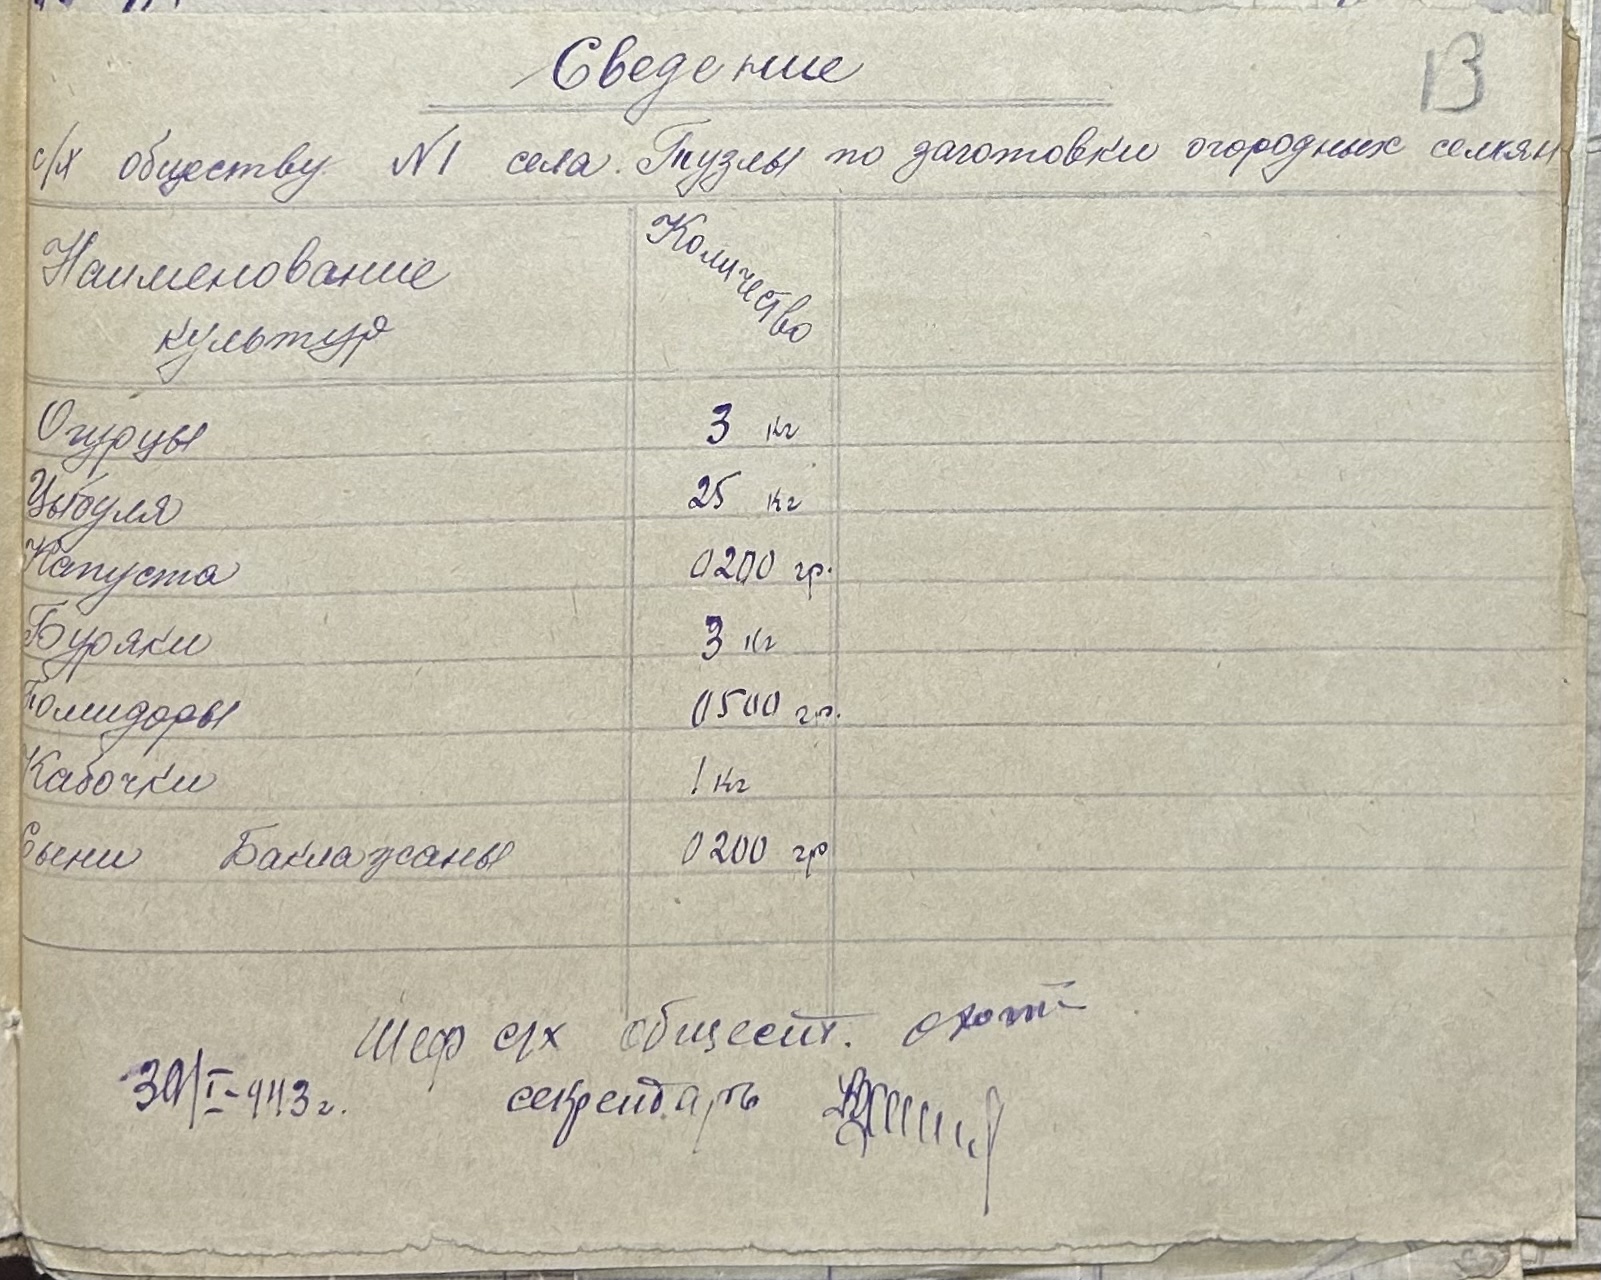 13
Сведение
с/х обществу N1 села Тузлы по заготовки огородных семян
Наименование культур Количество
Огурцы 3 кг
Цыбуля 25 кг
Капуста 0200 гр.
Буряки 3 кг
Помидоры 0500 гр.
Кабочки 1 кг
Сыни Баклажаны 0200 гр
Шеф с/х общест.
30/I-943 г. секретарь